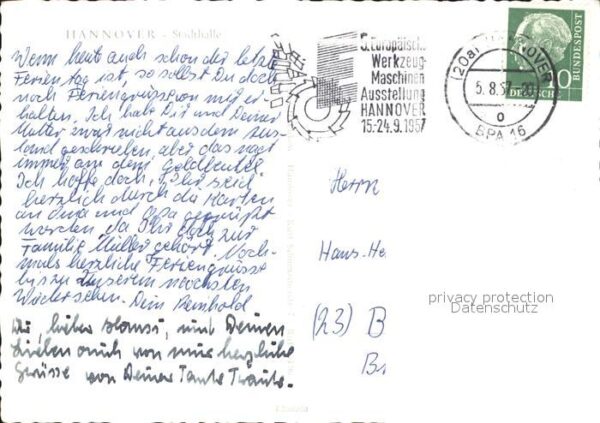 HANNOVER - Stadthalle
Wenn heut auch schon der letzte
Ferientag ist, so sollst Du doch
noch Feriengrüsse von mir er-
halten. Ich hab Dir und Deiner
Mutter zwar nicht aus dem Aus-
land geschrieben, aber das nagt
immer an dem Geldbeutel.
Ich hoffe doch, Ihr seid
herzlich durch die Karten
an Oma und Opa gegrüßt
worden, da Ihr doch zur
Familie Müller gehört. Noch-
mals herzliche Feriengrüsse
bis zu unserem nächsten
Wiedersehen. Dein Reinhold
Dir, lieber Hansi, und Deinen
Lieben auch von mir herzliche
Grüsse von Deiner Tante Traute.
5. Europäisch.
Werkzeug-
Maschinen
Ausstellung
HANNOVER
15.-24.9.1957
(20a) HANNOVER
5.8.57-20
o
BPA 16
DEUTSCHE
BUNDESPOST
Herrn
Hans-He
(23) B
privacy protection
Datenschutz